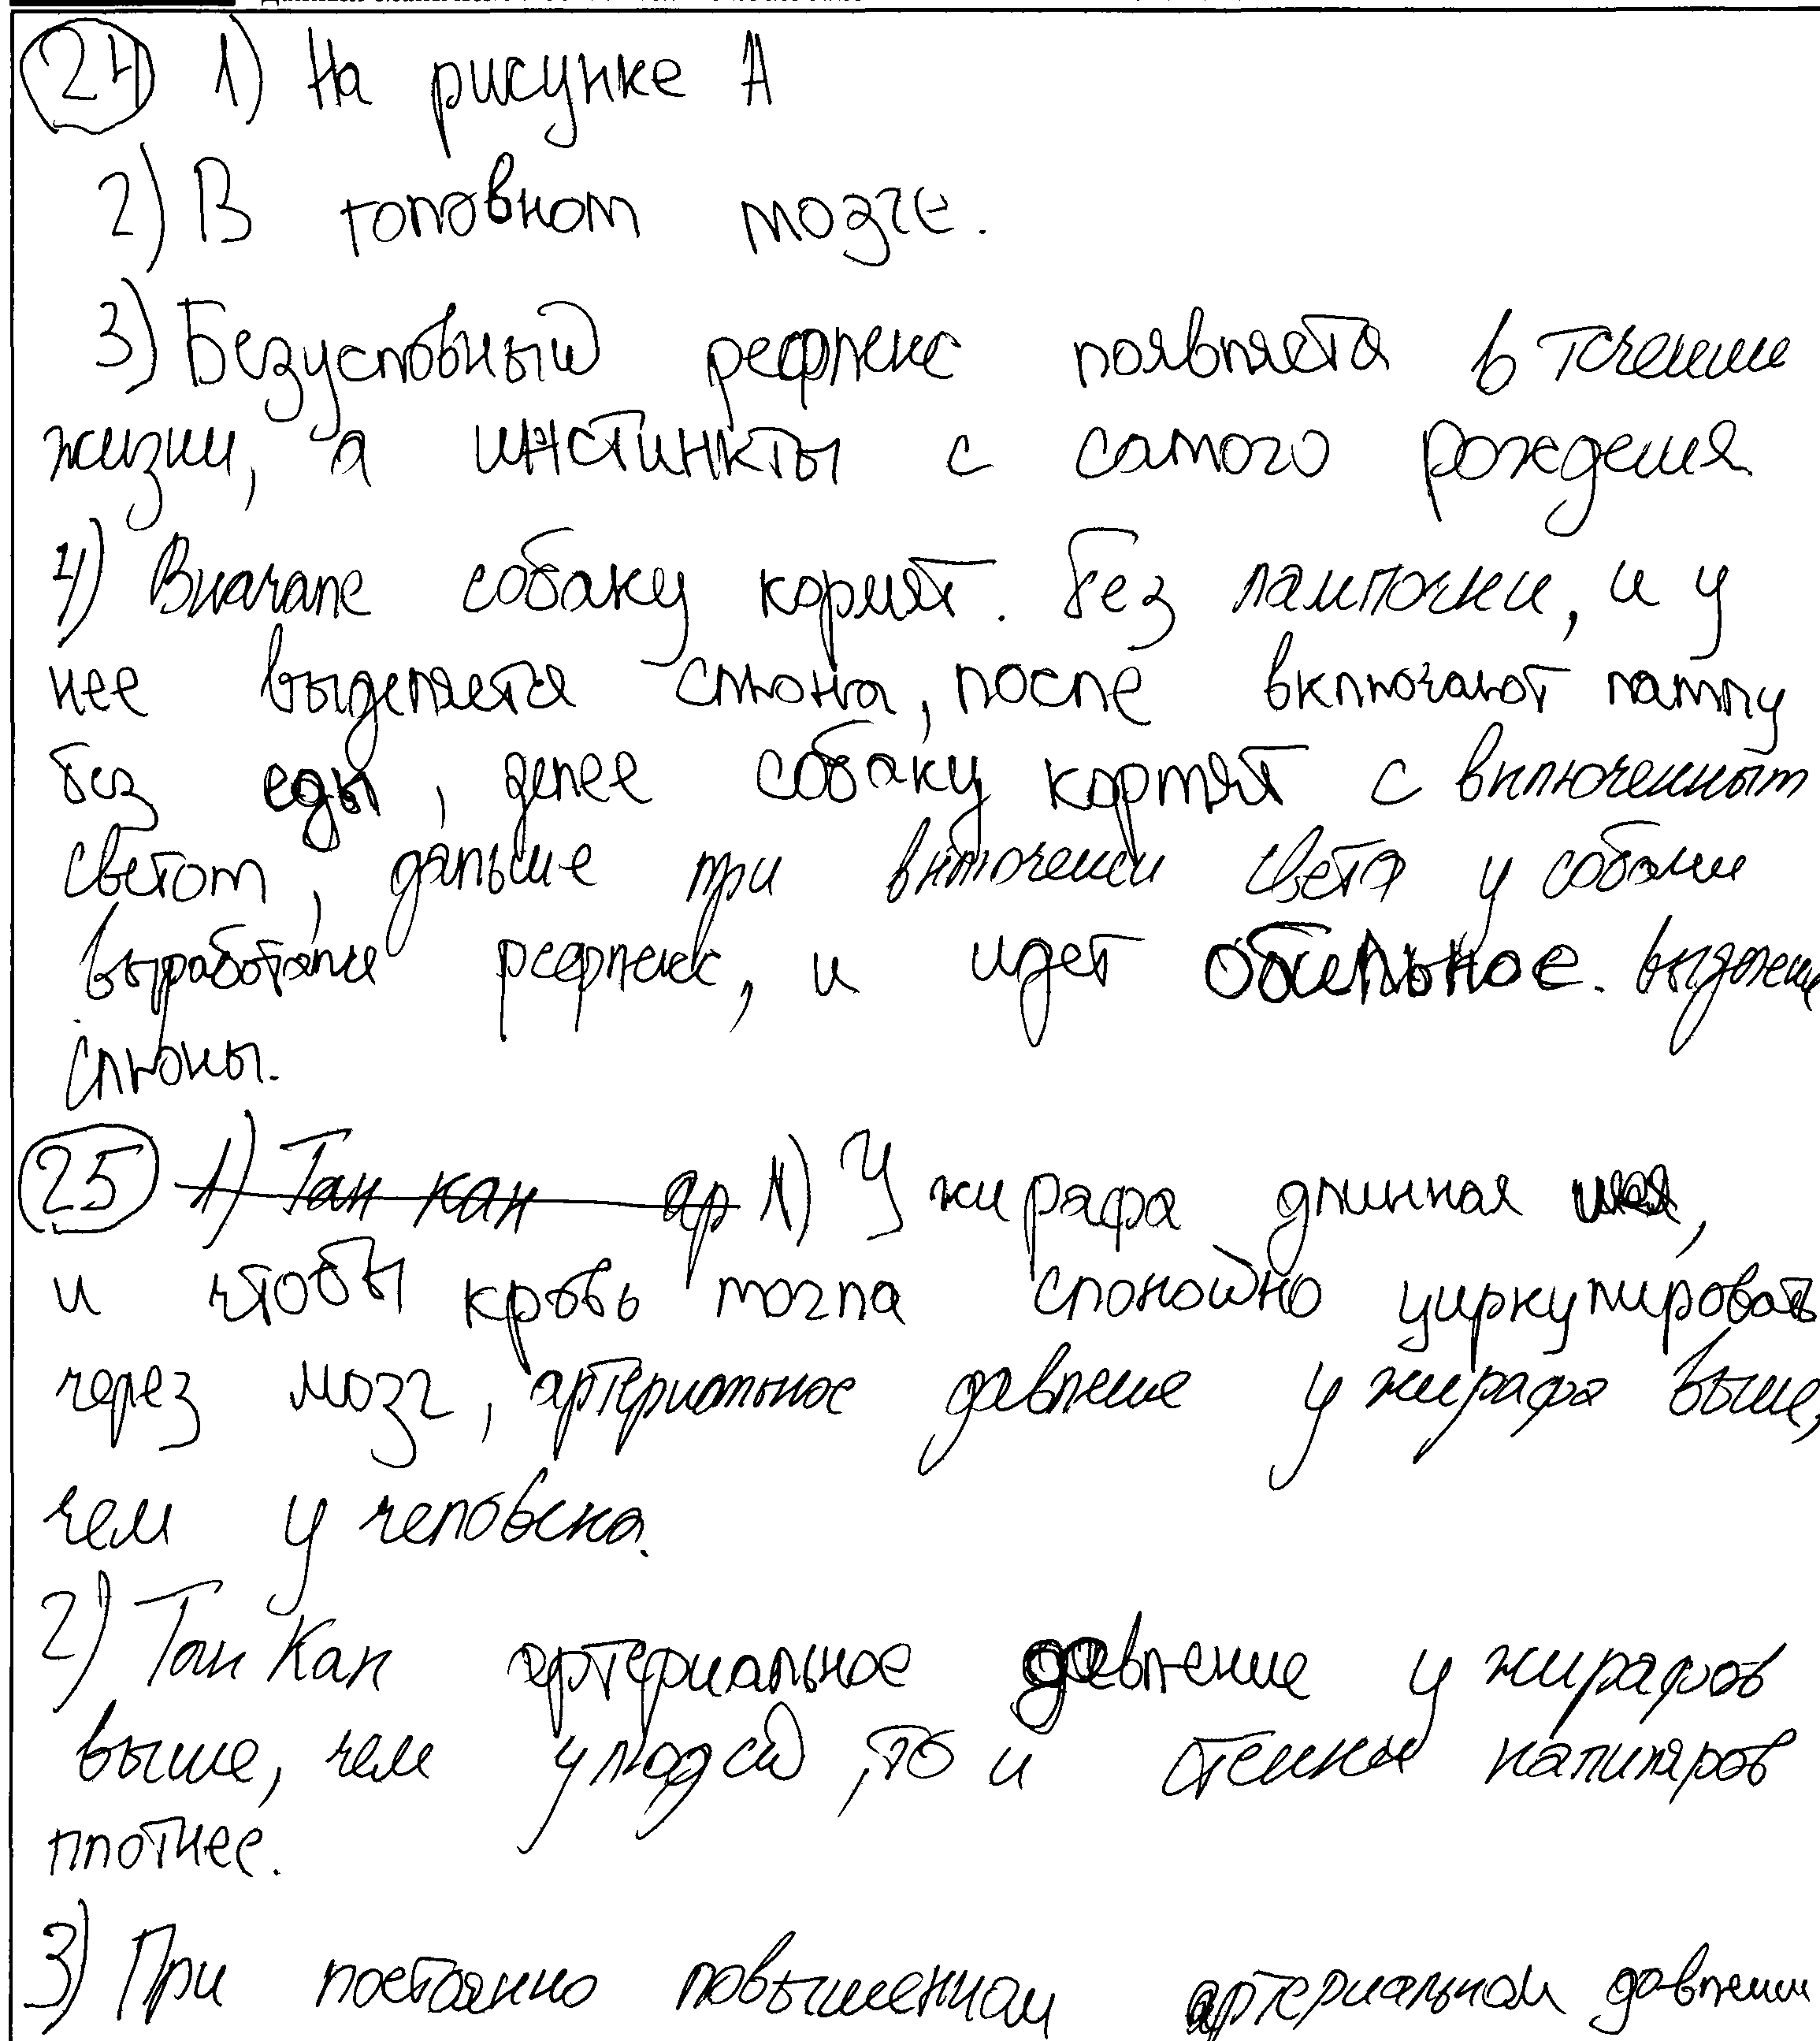 24 1) На рисунке А
2) В головном мозге.
3) Безусловный рефлекс появляется в течении
жизни, а инстинкты с самого рождения
4) Вначале собаку кормят. без лампочки, и у
нее выделяется слюна, после включают лампу
без еды, делее собаку кормят с включенным
светом, дальше при включении света у собаки
выработали рефлекс, и идет обильное. выделение
слюны.
25 1) Так как ар 1) У жирафа длинная шея,
и чтобы кровь могла спокойно циркулировать
через мозг, артериальное давление у жирафа выше,
чем у человека.
2) Так как артериальное давление у жирафов
выше, чем у людей, то и стенки капиляров
плотнее.
3) При постоянно повышенном артериальном давлении